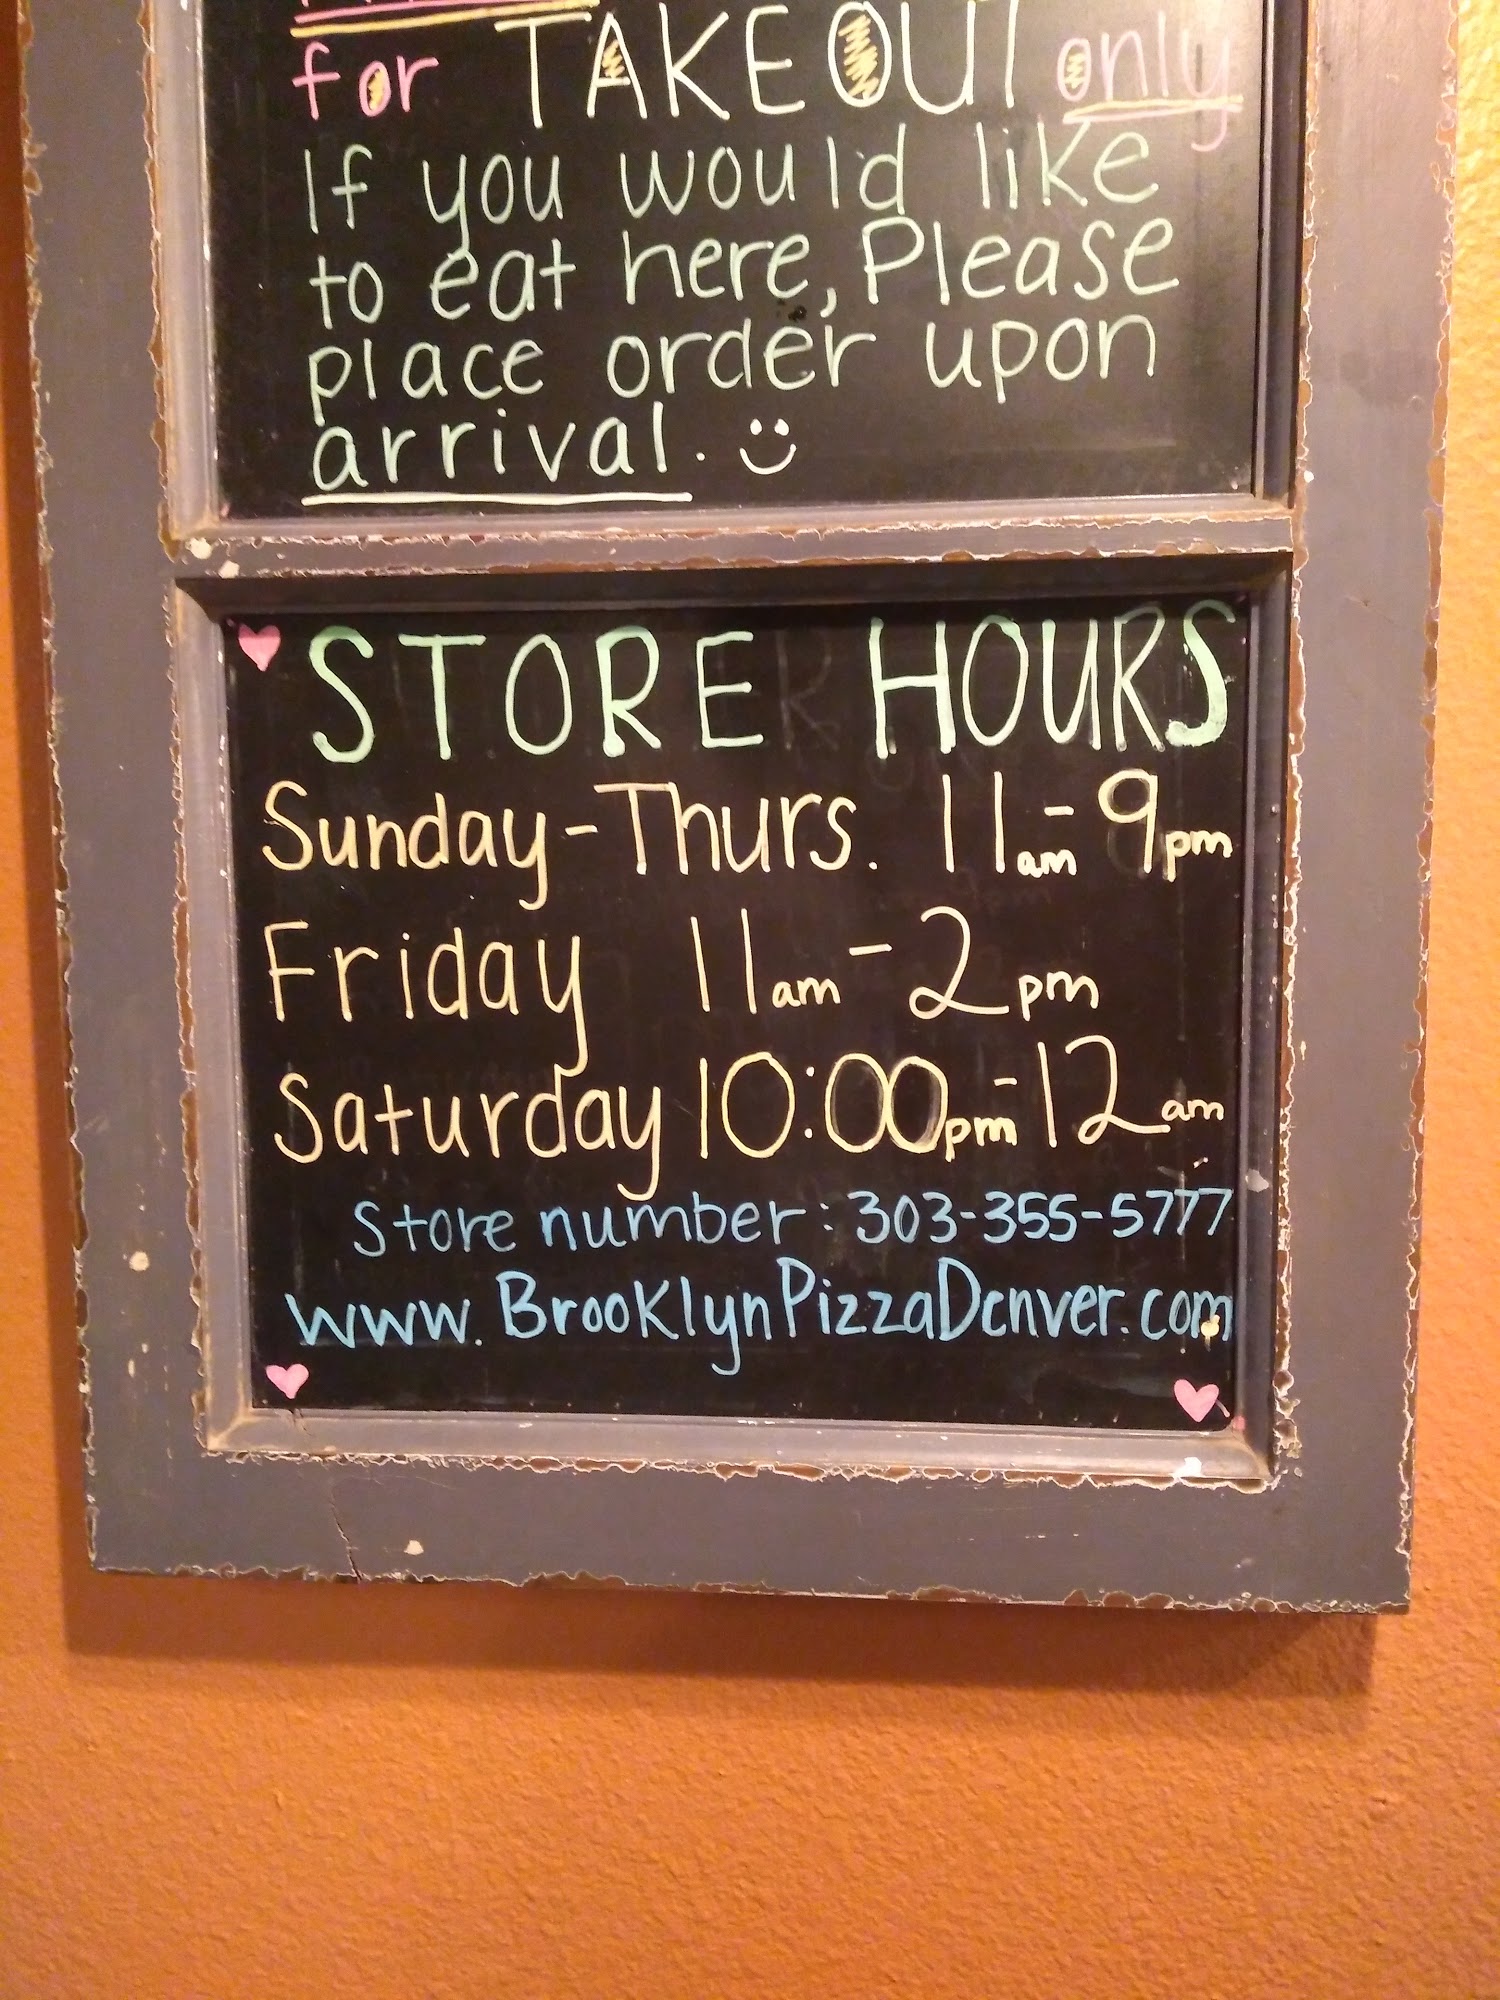 for TAKEOUT only
If you would like
to eat here, Please
place order upon
arrival.
STORE HOURS
Sunday-Thurs. 11am-9pm
Friday 11am-2pm
Saturday 10:00pm-12am
Store number: 303-355-5777
www.BrooklynPizzaDenver.com